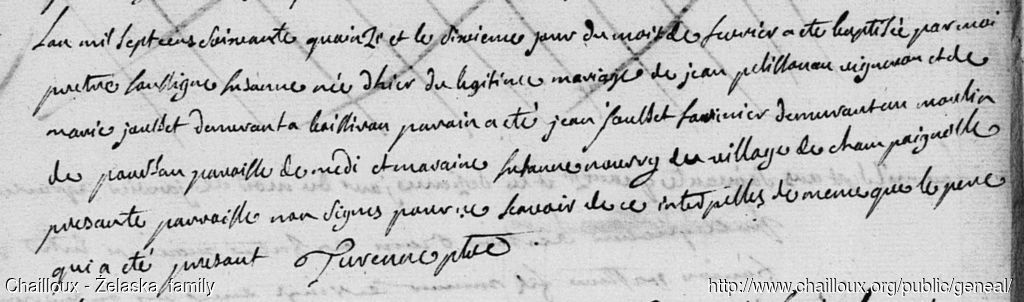 Lan mil sept cens soixante quainze et le sixieme jour du mois de fevrier a eté baptisée par moi
pretre soussigne susanne née d'hier du legitime mariage de jean pelillonau vigneron et de
marie jousset demeurant a parain a eté jean jousset farinier demeurant au moulin
de paroisse de medi et maraine susanne nourry du village de champaignolle
presante parroisse non signes pour ne scavoir de ce interpelles de meme que le pere
qui a eté presant Turenne ptre
Chailloux - Żelaska family
http://www.chailloux.org/public/geneal/